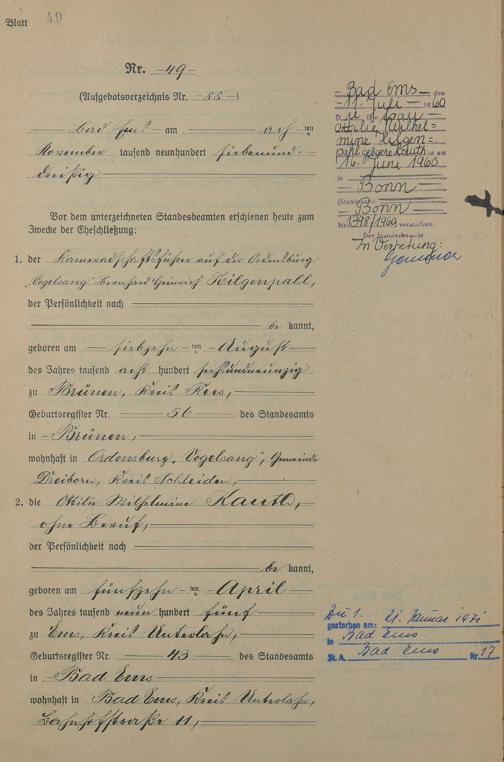 Blatt 49
Nr. 49
(Aufgebotsverzeichnis Nr. 88)
Bad Ems am acht ten
November tausend neunhundert siebenund-
dreißig
Vor dem unterzeichneten Standesbeamten erschienen heute zum
Zwecke der Eheschließung:
1. der Kameradschaftsführer auf der Ordensburg
"Vogelsang" Bernhard Heinrich Hilgenpahl,
der Persönlichkeit nach
be kannt,
geboren am siebzehn ten August
des Jahres tausend acht hundert sechsundneunzig
zu Brünen, Kreis Rees,
Geburtsregister Nr. 56 des Standesamts
in Brünen,
wohnhaft in Ordensburg "Vogelsang", Gemeinde
Dreiborn, Kreis Schleiden,
2. die Ottilie Wilhelmine
ohne Beruf,
der Persönlichkeit nach
be kannt,
geboren am fünfzehn ten April
des Jahres tausend neun hundert fünf
zu Ems, Kreis Unterlahn,
Geburtsregister Nr. 43 des Standesamts
in Bad Ems
wohnhaft in Bad Ems, Kreis Unterlahn,
Bahnhofstraße 11,
Bad Ems, den
11. Juli 1960
Ottilie Wilhel=
mine
geborene
16. Juni 1960
in
Bonn
(Standesamt
Bonn
Nr. 1398/1960) verstorben.
Der Standesbeamte
In Vertretung:
Zu 1. 21. Januar 1971
gestorben am:
in Bad Ems
St. A. Bad Ems Nr. 17